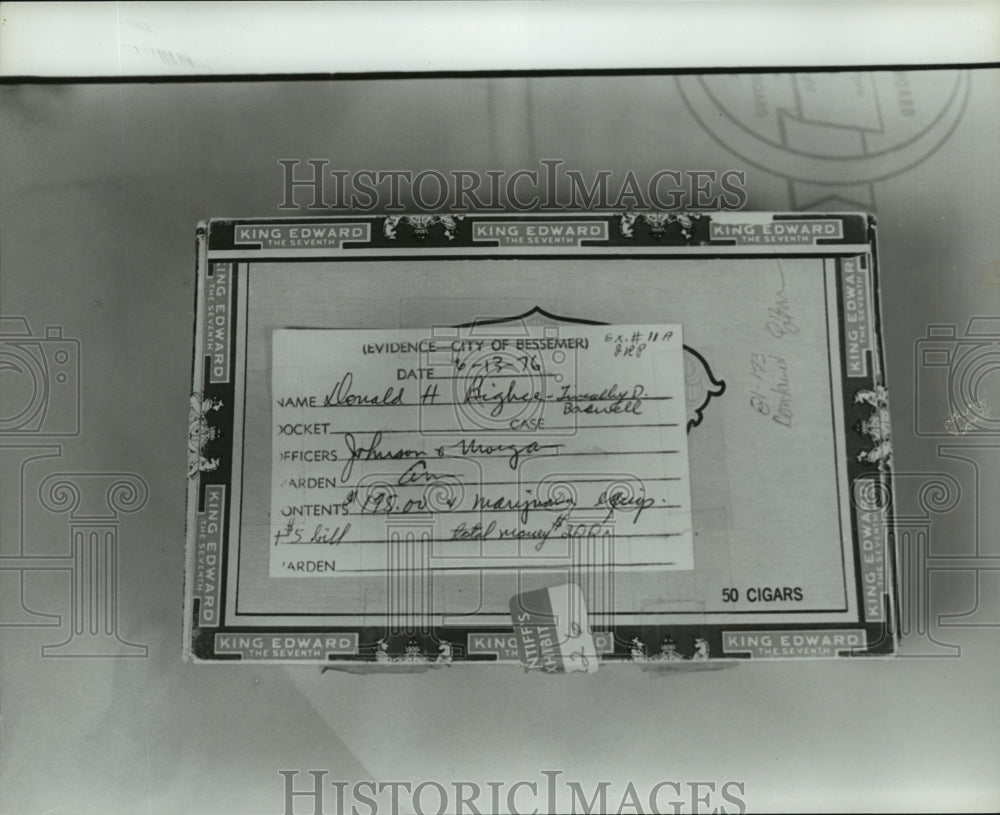 HISTORIC IMAGES
KING EDWARD THE SEVENTH KING EDWARD THE SEVENTH KING EDWARD THE SEVENTH
KING EDWARD THE SEVENTH
KING EDWARD THE SEVENTH
(EVIDENCE—CITY OF BESSEMER) Ex. # 11 A
DATE 6-13-76
NAME Donald H - Timothy D.
DOCKET CASE
OFFICERS Johnson &
ARDEN
ONTENTS $195.00 & marijuana equip.
+ $5 bill total money $200.
ARDEN
81-173
KING EDWARD THE SEVENTH
KING EDWARD THE SEVENTH
50 CIGARS
KING EDWARD THE SEVENTH KING KING EDWARD THE SEVENTH
NTIFF'S
XHIBIT
HISTORIC IMAGES